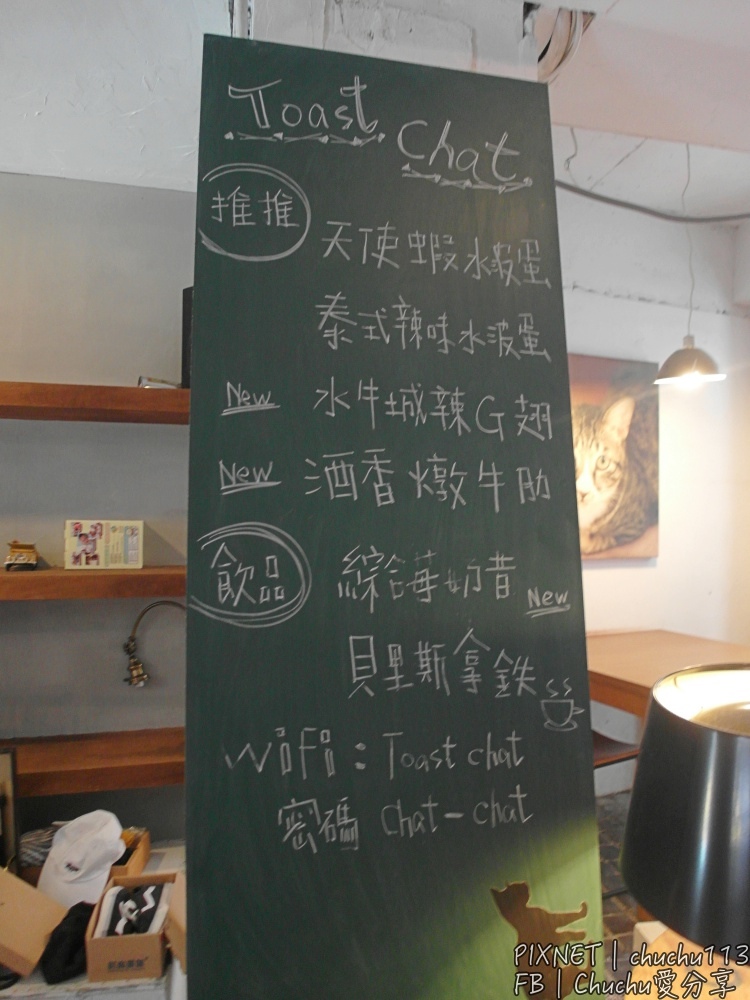 Toast
Chat
推推
天使蝦水波蛋
泰式辣味水波蛋
New 水牛城辣G翅
New 酒香燉牛肋
飲品
綜合莓奶昔
New
貝里斯拿鐵
WiFi：Toast chat
密碼 Chat-chat
PIXNET | chuchu113
FB | Chuchu愛分享